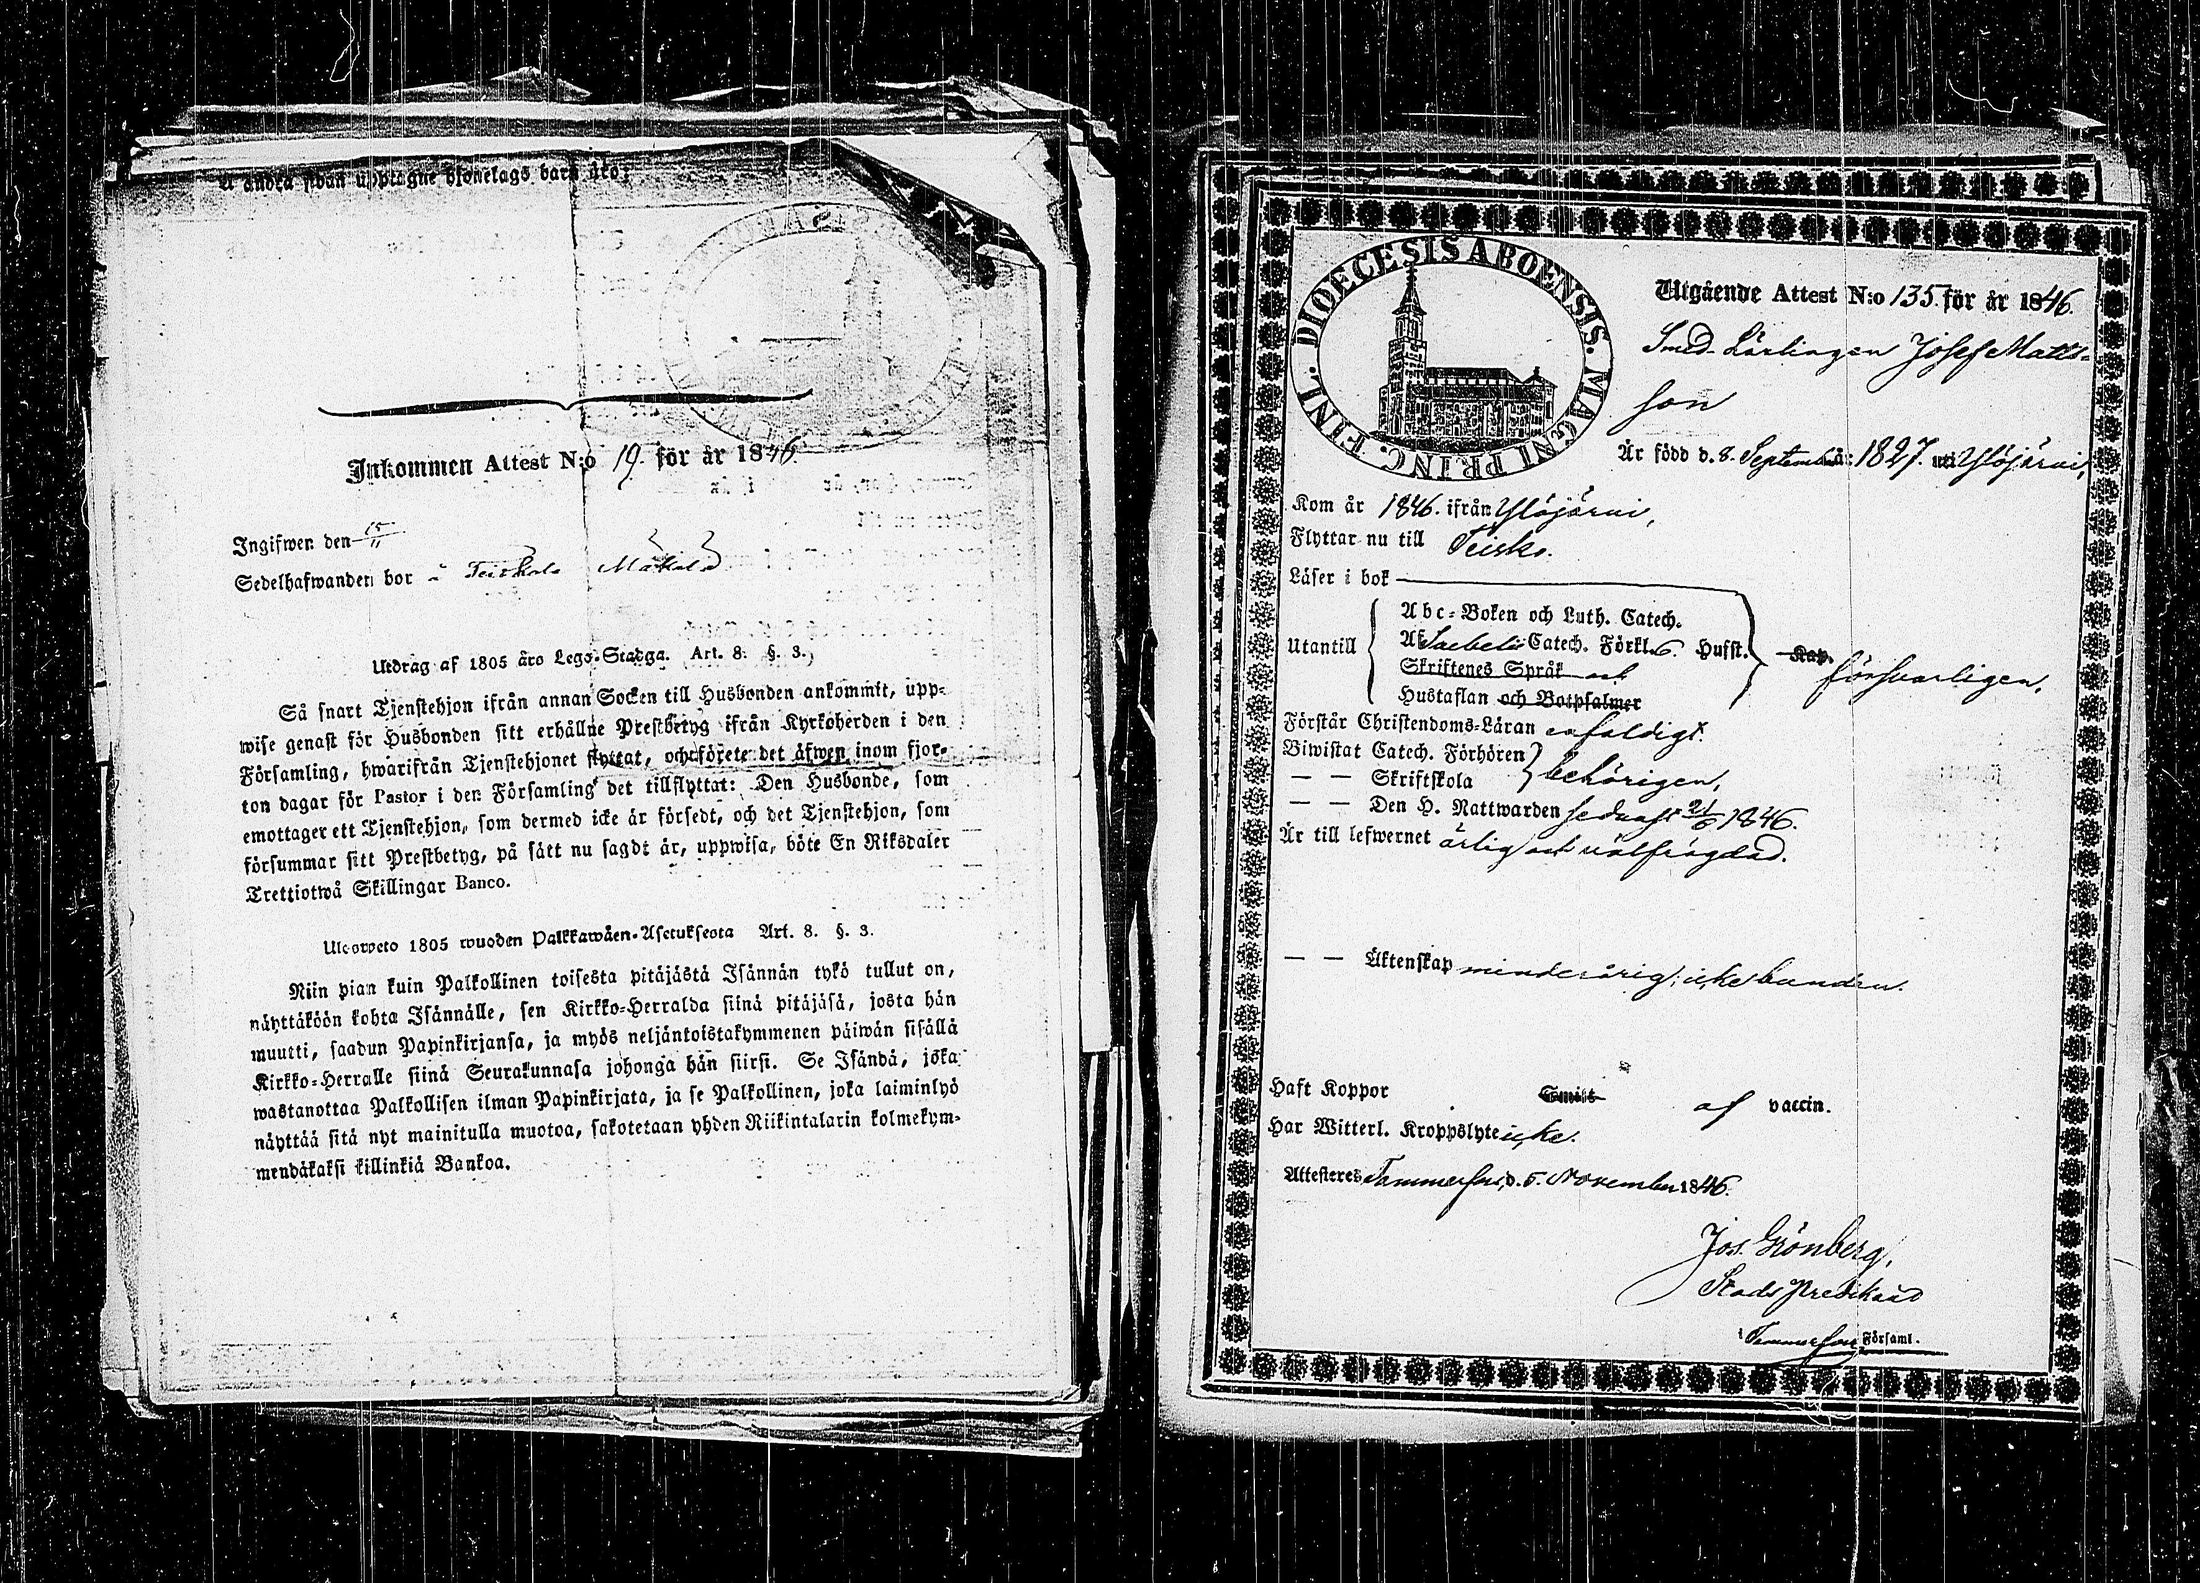 andra sidan upptagne Hjonelags barn äro:
Inkommen Attest N:o 19. för år 1846.
Ingifwen den 15/11
Sedelhafwanden bor i Teiskola Mäkelä
Utdrag af 1805 års Lego-Stadga. Art. 8. §. 3.
Så snart Tjenstehjon ifrån annan Socken till Husbonden ankommit, upp-
wise genast för Husbonden sitt erhållne Prestbetyg ifrån Kyrkoherden i den
Församling, hwarifrån Tjenstehjonet flyttat, och förete det äfwen inom fjor-
ton dagar för Pastor i den Församling det tillflyttat: Den Husbonde, som
emottager ett Tjenstehjon, som dermed icke är försedt, och det Tjenstehjon, som
försummar sitt Prestbetyg, på sätt nu sagdt är, uppwisa, böte En Riksdaler
Trettiotwå Skillingar Banco.
Ulosweto 1805 wuoden Palkkawäen-Asetuksesta Art. 8. §. 3.
Niin pian kuin Palkollinen toisesta pitäjästä Isännän tykö tullut on,
näyttäköön kohta Isännälle, sen Kirkko-Herralda siinä pitäjäsä, josta hän
muutti, saadun Papinkirjansa, ja myös neljäntoistakymmenen päiwän sisällä
Kirkko-Herralle siinä Seurakunnasa johonga hän siirsi. Se Isändä, joka
wastanottaa Palkollisen ilman Papinkirjata, ja se Palkollinen, joka laiminlyö
näyttää sitä nyt mainitulla muotoa, sakotetaan yhden Riikintalarin kolmekym-
mendäkaksi killinkiä Bankoa.
DIOECESIS ABOENSIS. MAGNI PRINC. FINL.
Utgående Attest N:o 135. för år 1846.
Smed-Lärlingen Josef Matts-
son
Är född d. 8. September år 1827. uti Ylöjärvi,
Kom år 1846. ifrån Ylöjärvi,
Flyttar nu till Teisko.
Läser i bok
Utantill
Abc-Boken och Luth. Catech.
Af Svebelii Catech. Förkl. 6. Hufst. Kap.
Skriftenes Språk och
Hustaflan och Botpsalmer
försvarligen,
Förstår Christendoms-Läran enfaldigt.
Biwistat Catech. Förhören
— — Skriftskola
behörigen,
— — Den H. Nattwarden sednast 21/6 1846.
Är till lefwernet ärlig och välfrägdad.
— — Äktenskap minderårig; icke bunden.
Haft Koppor af vaccin.
Har Witterl. Kroppslyte icke.
Attesteres Tammerfors, d. 5. November 1846.
Jos. Grönberg,
Stads Predikand
i Tammerfors Församl.